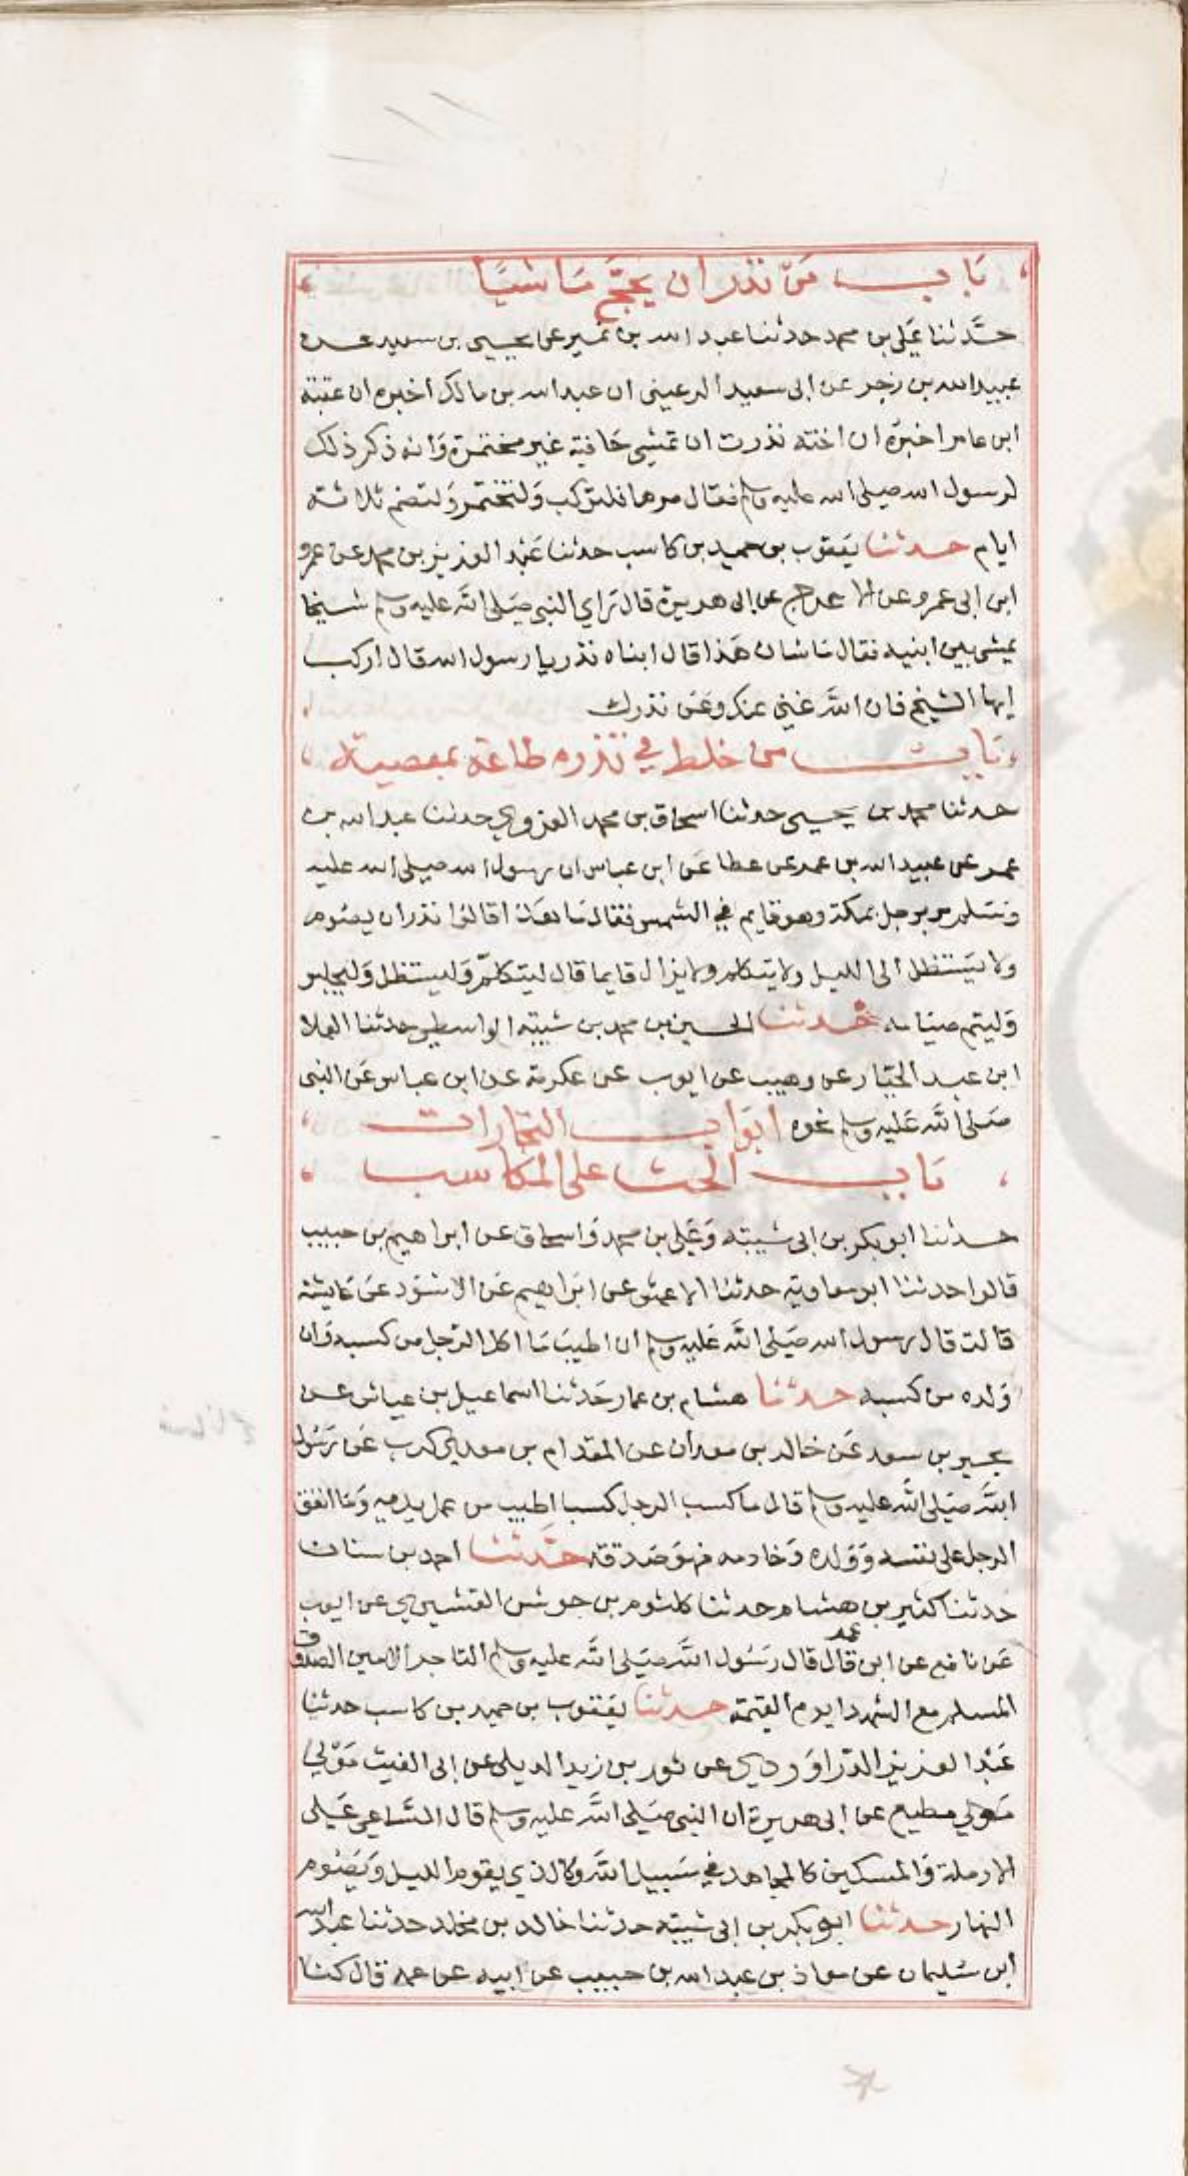 باب من نذر ان يحج ماشيا
حدثنا علي بن محمد حدثنا عبد الله بن نمير عن يحيى بن سعيد عن
عبيد الله بن زجر عن ابي سعيد الرعيني ان عبد الله بن مالك اخبره ان عقبة
ابن عامر اخبره ان اخته نذرت ان تمشي حافية غير مختمرة وانه ذكر ذلك
لرسول الله صلى الله عليه وسلم فقال مرها فلتركب ولتختمر ولتصم ثلاثة
ايام حدثنا يعقوب بن حميد بن كاسب حدثنا عبد العزيز بن محمد عن عمرو
ابن ابي عمرو عن الاعرج عن ابي هريرة قال راي النبي صلى الله عليه وسلم شيخا
يمشي بين ابنيه فقال ما شان هذا قال ابناه نذر يا رسول الله قال اركب
ايها الشيخ فان الله غني عنك وعن نذرك
باب من خلط في نذره طاعة بمعصية
حدثنا محمد بن يحيى حدثنا اسحاق بن محمد الفروي حدثنا عبد الله بن
عمر عن عبيد الله بن عمر عن عطا عن ابن عباس ان رسول الله صلى الله عليه
وسلم مر برجل بمكة وهو قايم في الشمس فقال ما هذا قالوا نذر ان يصوم
ولا يستظل الى الليل ولا يتكلم ولا يزال قايما قال ليتكلم وليستظل وليجلس
وليتم صيامه حدثنا الحسين بن محمد بن شيبة الواسطي حدثنا العلا
ابن عبد الجبار عن وهيب عن ايوب عن عكرمة عن ابن عباس عن النبي
صلى الله عليه وسلم نحوه ابواب التجارات
باب الحث على المكاسب
حدثنا ابو بكر بن ابي شيبة وعلي بن محمد واسحاق عن ابراهيم بن حبيب
قالوا حدثنا ابو معاوية حدثنا الاعمش عن ابراهيم عن الاسود عن عايشة
قالت قال رسول الله صلى الله عليه وسلم ان اطيب ما اكل الرجل من كسبه وان
ولده من كسبه حدثنا هشام بن عمار حدثنا اسماعيل بن عياش عن
بحير بن سعد عن خالد بن معدان عن المقدام بن معدي كرب عن رسول
الله صلى الله عليه وسلم قال ما كسب الرجل كسبا اطيب من عمل يديه وما انفق
الرجل على نفسه وولده وخادمه فهو صدقة حدثنا احمد بن سنان
حدثنا كثير بن هشام حدثنا كلثوم بن جوشن القشيري عن ايوب
عن نافع عن ابن عمر قال قال رسول الله صلى الله عليه وسلم التاجر الامين الصدوق
المسلم مع الشهدا يوم القيمة حدثنا يعقوب بن حميد بن كاسب حدثنا
عبد العزيز الدراوردي عن ثور بن زيد الديلي عن ابي الغيث مولى
مولي مطيع عن ابي هريرة ان النبي صلى الله عليه وسلم قال الساعي على
الارملة والمسكين كالمجاهد في سبيل الله وكالذي يقوم الليل ويصوم
النهار حدثنا ابو بكر بن ابي شيبة حدثنا خالد بن مخلد حدثنا عبد الله
ابن سليمان عن معاذ بن عبد الله بن حبيب عن ابيه عن عمه قال كنا